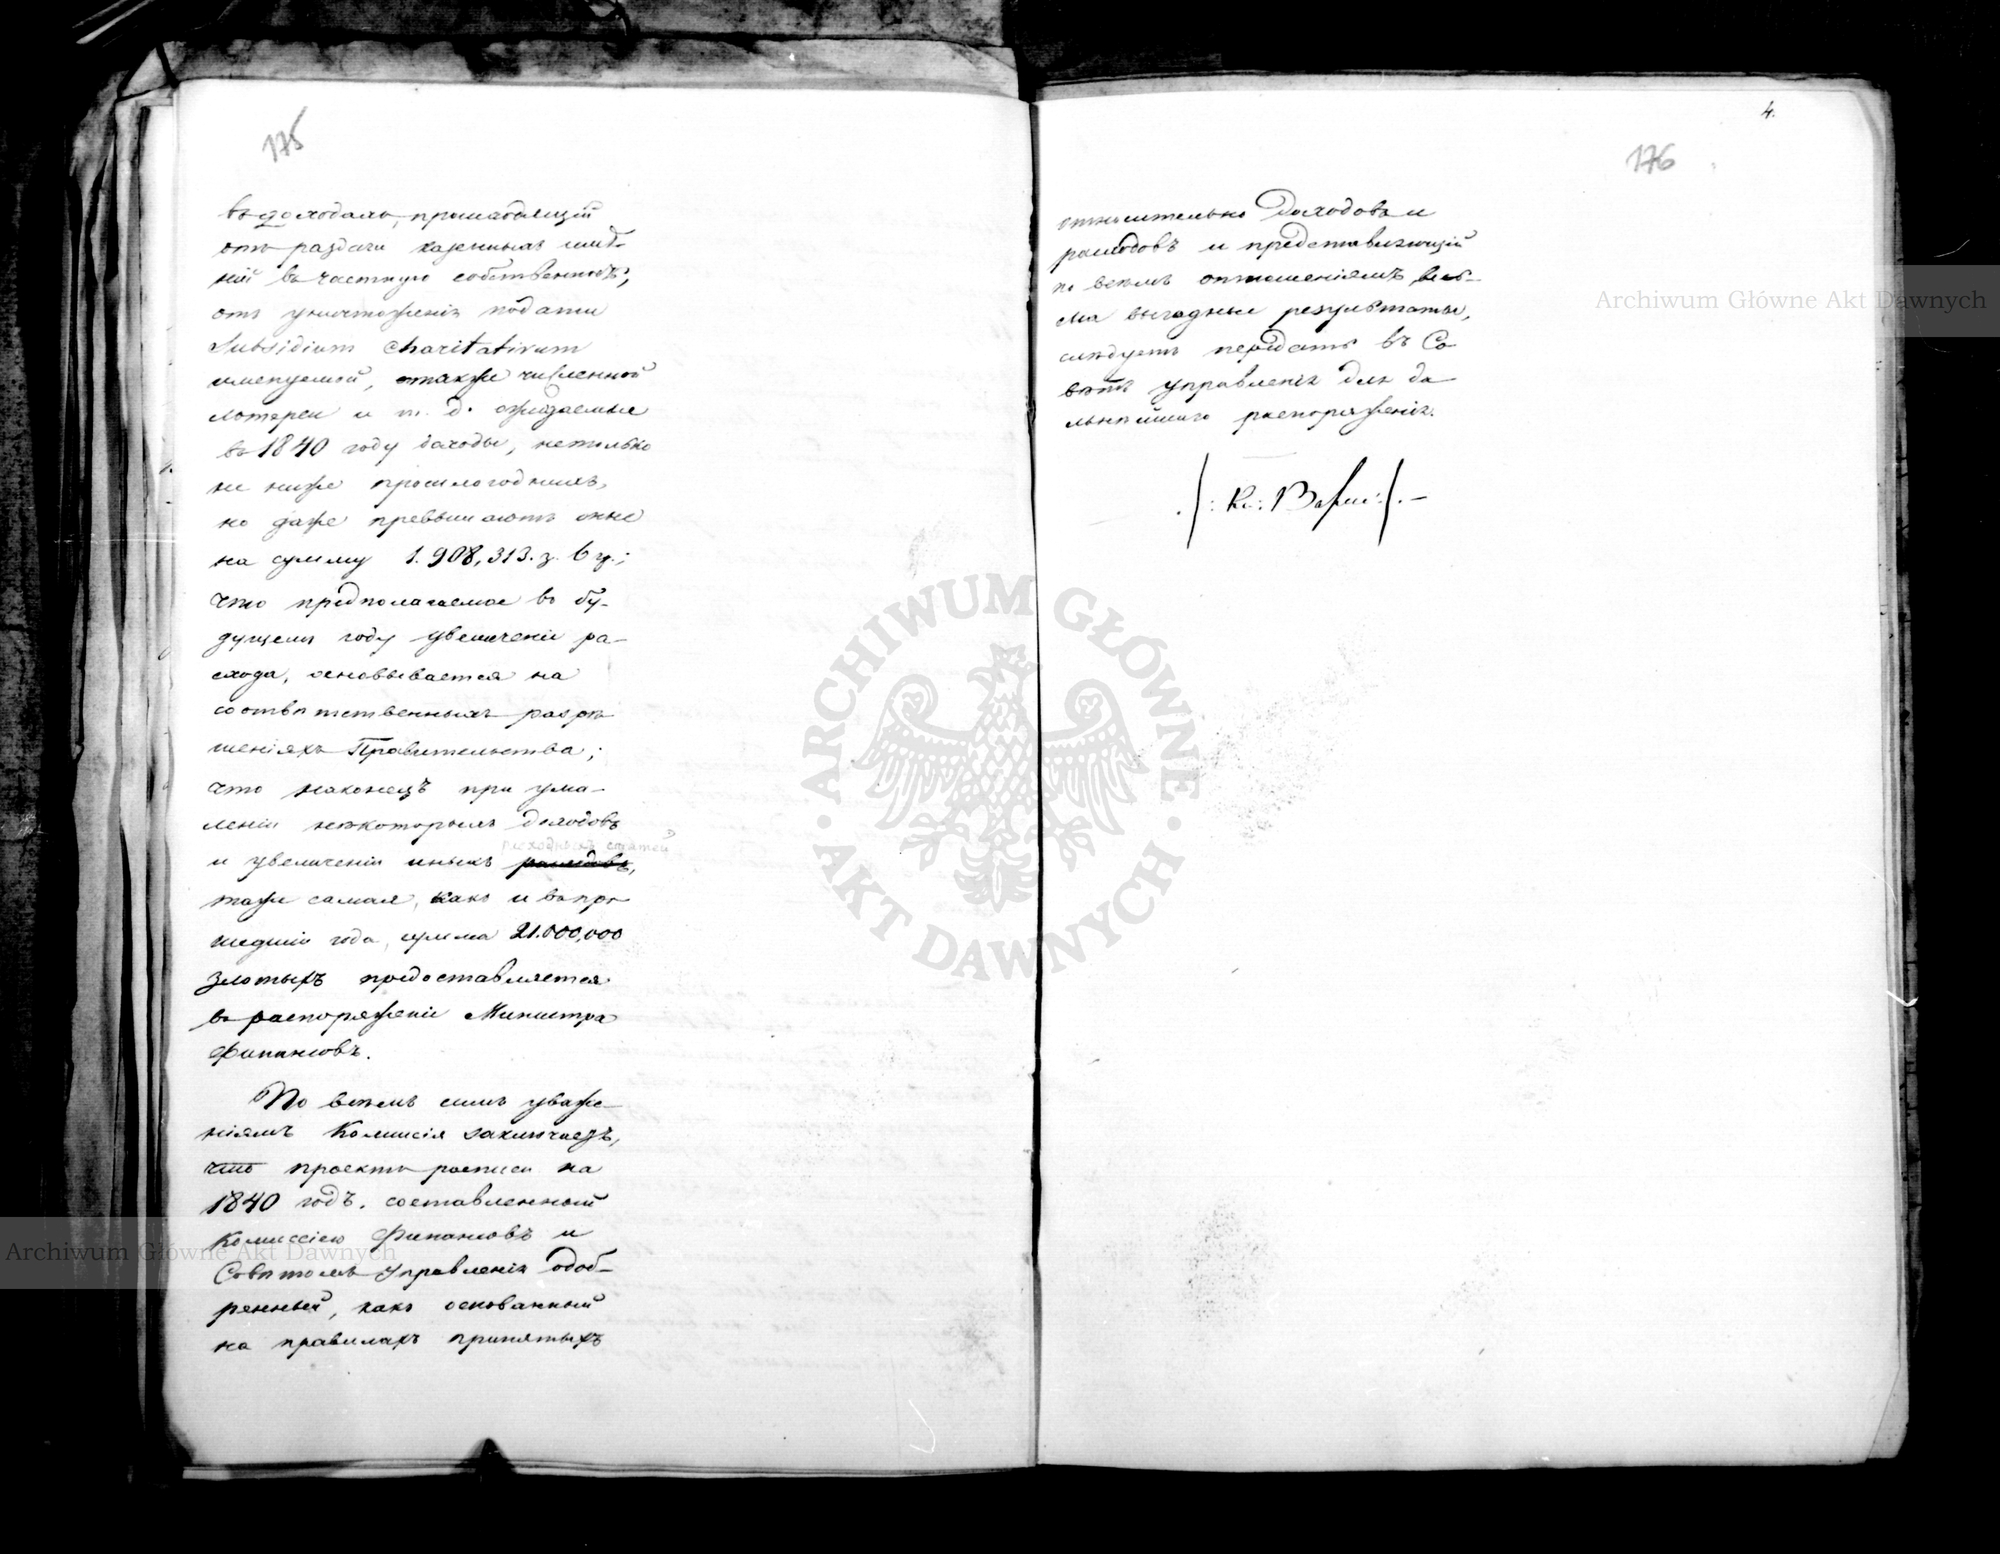 175
въ доходахъ, происходящій
отъ раздачи казенныхъ имѣ-
ній въ частную собственность;
отъ уничтоженія подати
Subsidium Charitativum
именуемой, также численной
лотереи и т. д. ожидаемые
въ 1840 году доходы, нетолько
не ниже прошлогоднихъ,
но даже превышаютъ оные
на сумму 1.908,313. з. 6 г.;
что предполагаемое въ бу-
дущемъ году увеличеніе ра-
схода, основывается на
соотвѣтственныхъ разрѣ
шеніяхъ Правительства;
что наконецъ при ума-
леніи нѣкоторыхъ доходовъ
расходныхъ статей
и увеличеніи иныхъ расходовъ,
таже самая, какъ и въ про
шедшіи года, сумма 21.000,000
злотыхъ предоставляется
въ распоряженіе Министра
Финансовъ.
По всѣмъ симъ уваже-
ніямъ Комисія заключаетъ,
что проектъ росписи на
1840 годъ, составленный
Комиссіею Финансовъ и
Совѣтомъ Управленія одоб-
ренный, какъ основанный
на правилахъ принятыхъ
4.
176
относительно доходовъ и
расходовъ и представляющій
по всѣмъ отношеніямъ весь-
ма выгодные результаты,
слѣдуетъ передать въ Со
вѣтъ Управленія для да
льнѣйшаго распоряженія.
Archiwum Główne Akt Dawnych
ARCHIWUM GŁÓWNE · AKT DAWNYCH ·
Archiwum Główne Akt Dawnych